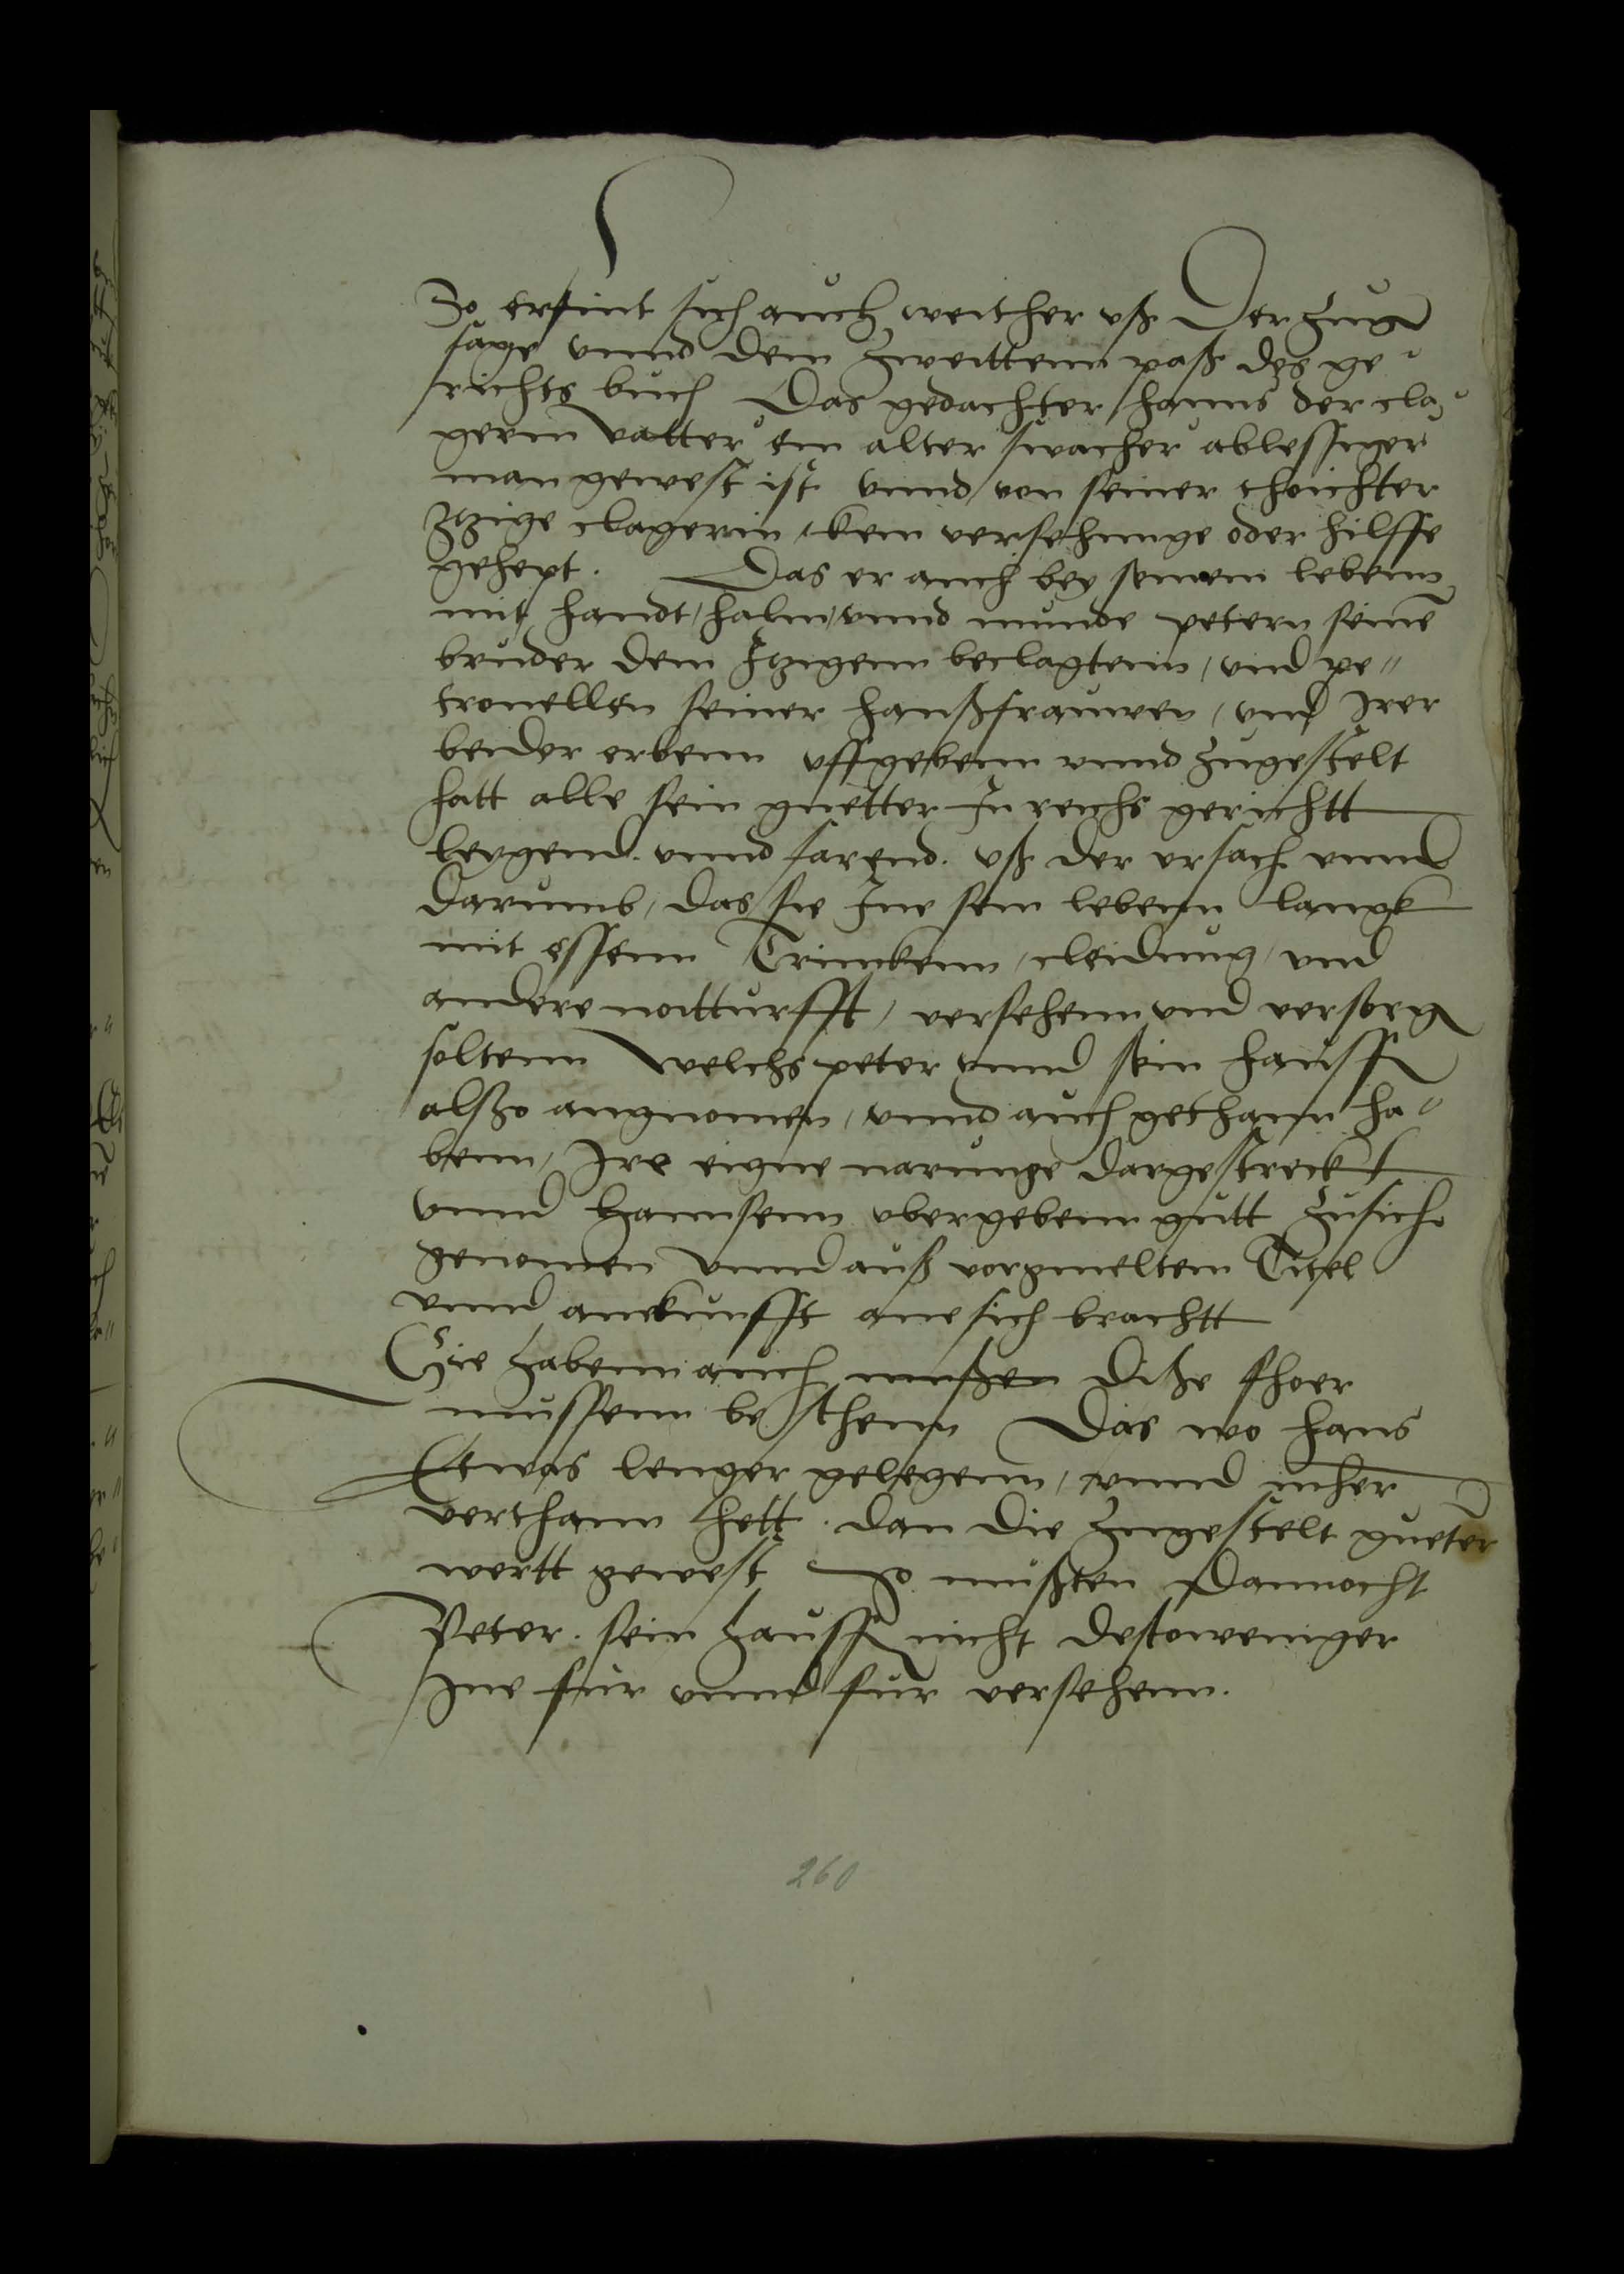 So erfint sich auch weither uß Der Zug
sage vnnd dem Zweittenn paß des ge
richts buch Das gedachter hanns der cla
gernn vatter ein alter swacher ablessiger
man gewest ist vnnd von seiner thoichter
Itzige clagerin, kein versehunge oder hilffe
gehept. Das er auch bey seinem lebenn
mit handt, halm, vnnd munde petern seinē
bruder dem Itzigenn beclagtenn, vnd pe„
tronellen seiner haußfrauwen, vnd Irer
beider erbenn uffgebenn vnnd zugestelt
hatt alle sein guetter In reichs gerichtt
leygend. vnnd farend. uß der ursach vnnd
darumb, das sie Ine sein lebenn langk
mit essenn Trinkenn, cleidung, vnd
andere notturfft, versehenn vnd versorg
soltenn welchs peter vnnd sein hausf
alßo angnomen, vnnd auch gethann ha„
benn, Ire eigne narunge dargestreckt
vnnd Hannsenn ubergebenn gutt zusich
genomen vnnd auß vorgmeltem Titel
vnnd ankunfft ane sich brachtt
Sie habenn auch mußen diße fhoer
mussenn besthenn Das wo hans
Etwas lenger gelegenn, vnnd mher
verthann hett. dan die zugestelt gueter
wertt gewest So mußten dannocht
Peter. sein hausf nicht destoweniger
Ine fur vnnd fur versehenn.
260